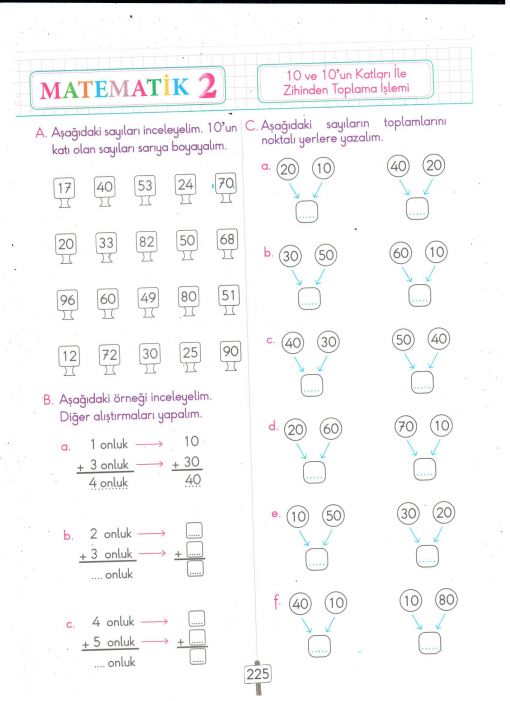 MATEMATİK 2
10 ve 10'un Katları İle
Zihinden Toplama İşlemi
A. Aşağıdaki sayıları inceleyelim. 10'un
katı olan sayıları sarıya boyayalım.
17 40 53 24 70
20 33 82 50 68
96 60 49 80 51
12 72 30 25 90
B. Aşağıdaki örneği inceleyelim.
Diğer alıştırmaları yapalım.
a. 1 onluk → 10
+ 3 onluk → + 30
4 onluk 40
b. 2 onluk → .....
+ 3 onluk → + .....
.... onluk .....
c. 4 onluk → .....
+ 5 onluk → + .....
.... onluk .....
C. Aşağıdaki sayıların toplamlarını
noktalı yerlere yazalım.
a. 20 10 40 20
..... .....
b. 30 50 60 10
..... .....
c. 40 30 50 40
..... .....
d. 20 60 70 10
..... .....
e. 10 50 30 20
..... .....
f. 40 10 10 80
..... .....
225